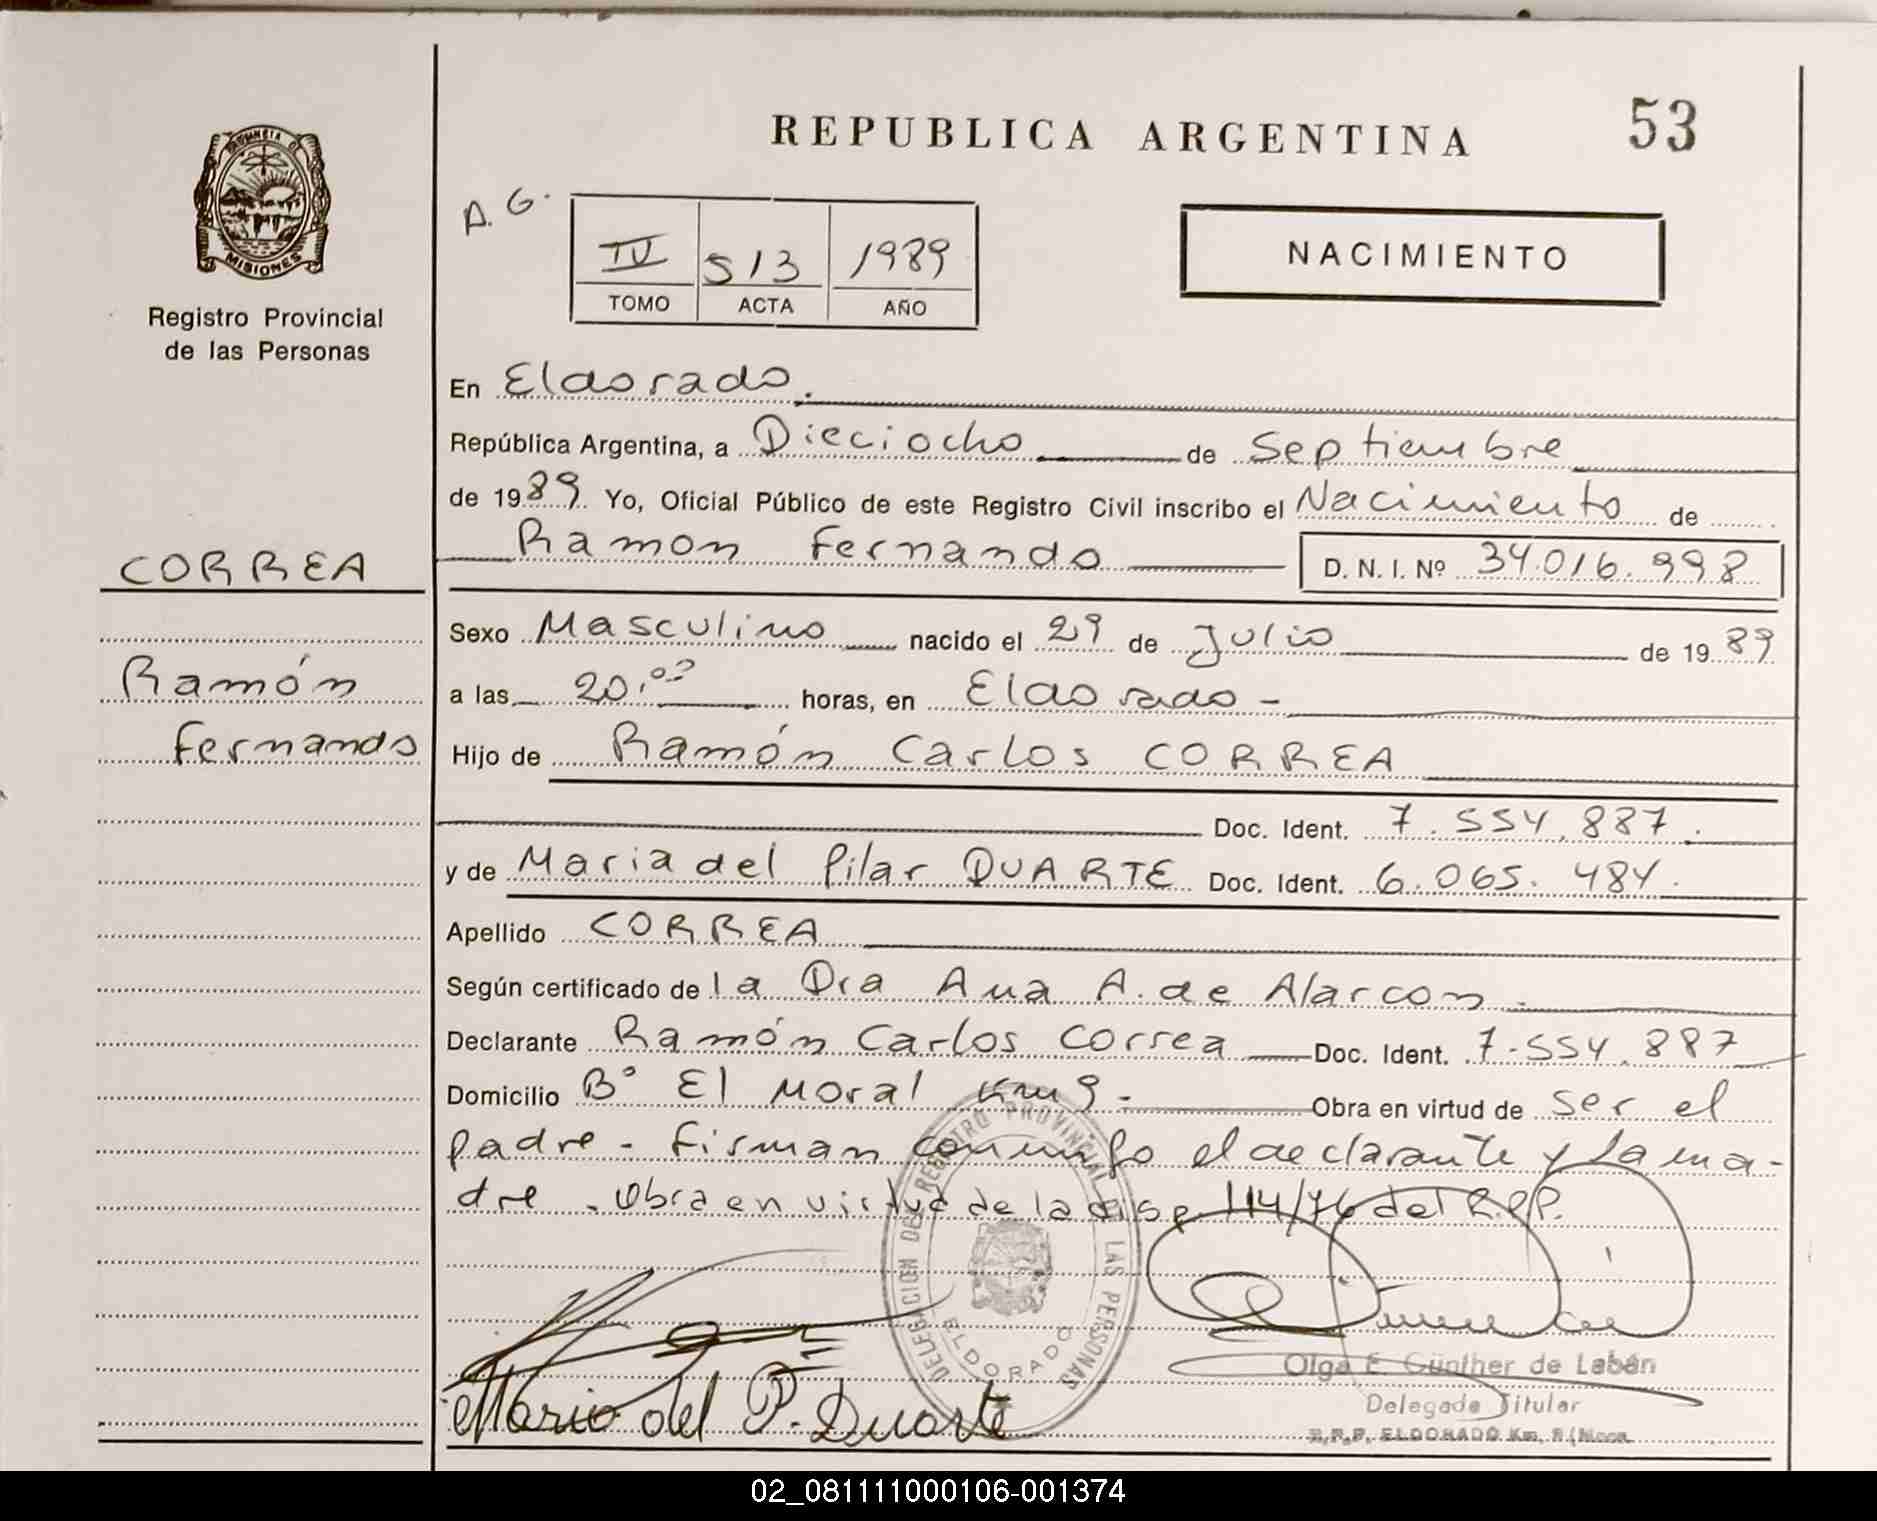 REPUBLICA ARGENTINA
53
PROVINCIA DE
MISIONES
Registro Provincial
de las Personas
A.G.
IV 513 1989
TOMO ACTA AÑO
NACIMIENTO
En Eldorado.
República Argentina, a Dieciocho de Septiembre
de 1989 Yo, Oficial Público de este Registro Civil inscribo el Nacimiento de
Ramon Fernando D. N. I. Nº 34.016.998
CORREA
Ramón
Fernando
Sexo Masculino nacido el 29 de Julio de 1989
a las 20,03 horas, en Eldorado -
Hijo de Ramón Carlos CORREA
Doc. Ident. 7.554.887.
y de Maria del Pilar DUARTE Doc. Ident. 6.065.484.
Apellido CORREA
Según certificado de la Dra Ana A. de Alarcon.
Declarante Ramón Carlos Correa Doc. Ident. 7.554.887
Domicilio Bº El Moral Km 9. Obra en virtud de ser el
padre - Firman conmigo el declarante y La ma-
dre . Obra en virtud de la disp 114/76 del R.P.P.
DELEGACION DEL REGISTRO PROVINCIAL DE LAS PERSONAS
ELDORADO
Maria del P. Duarte
Olga E. Günther de Labán
Delegada Titular
R.P.P. ELDORADO Km. 9
02_081111000106-001374